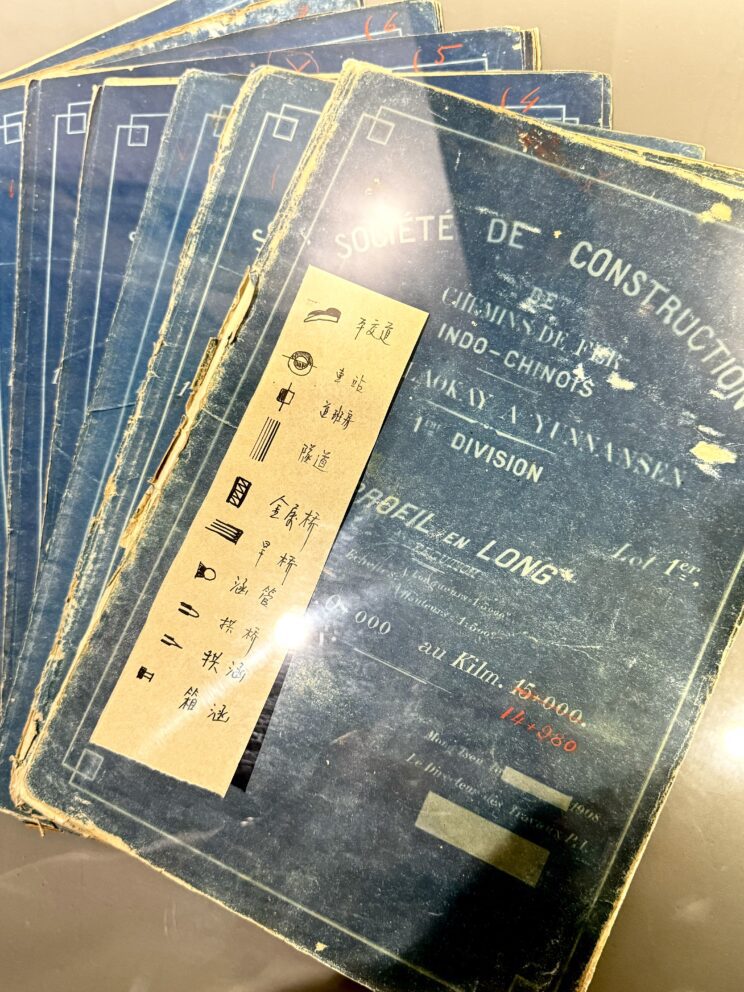 6
5
4
SOCIÉTÉ DE CONSTRUCTION
DE
CHEMINS DE FER
INDO-CHINOIS
LAOKAY A YUNNANSEN
1ère DIVISION
PROFIL EN LONG
Lot 1er.
000 au Kilm. 15+000.
14+980
1908
Le Directeur des Travaux P.I.
平交道
車站
道班房
隧道
金属桥
旱桥
涵管
拱桥
拱涵
箱涵